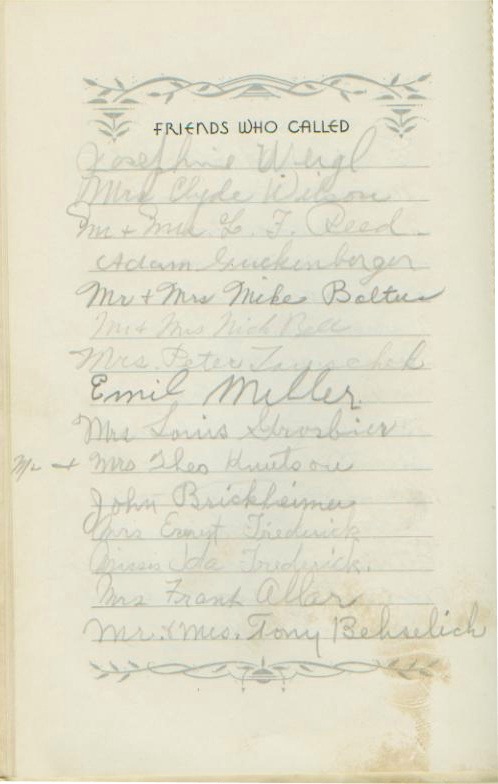 FRIENDS WHO CALLED
Josephine Weigl
Mrs Clyde Wilson
Mr + Mrs L. F. Reed
Adam Guckenberger
Mr + Mrs Mike Baltus
Mr + Mrs Nick Bell
Mrs. Peter
Emil Miller
Mrs Louis Grosbier
Mr + Mrs Theo Knutson
John Brickheimer
Mrs Ernest Frederick
Ida Frederick.
Mrs Frank Aller
Mr. & Mrs. Tony Behselich